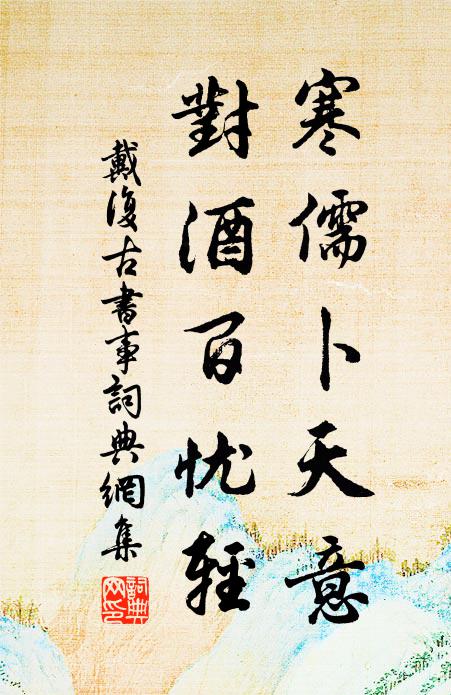 寒儒卜天意
對酒百忧輕
戴復古書事詞典網集
詞典網印